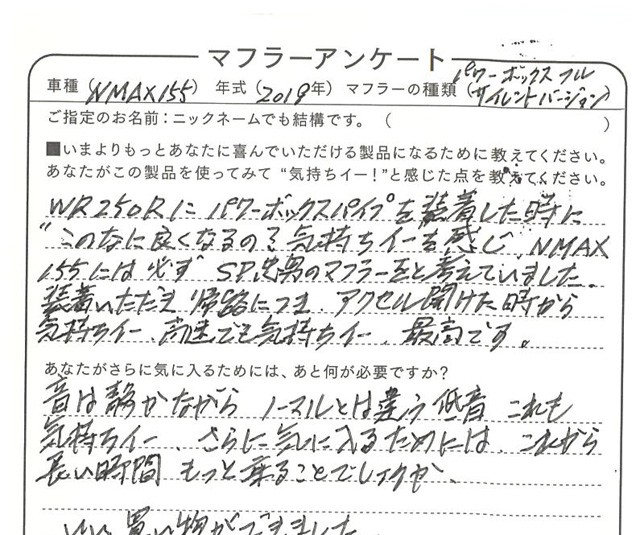 マフラーアンケート
車種(NMAX155) 年式(2018年) マフラーの種類(パワーボックスフル
サイレントバージョン)
ご指定のお名前:ニックネームでも結構です。( )
■いまよりもっとあなたに喜んでいただける製品になるために教えてください。
あなたがこの製品を使ってみて“気持ちイー!”と感じた点を教えてください。
WR250Rに パワーボックスパイプを装着した時に
“このなに良くなるの?気持ちイーを感じ、NMAX
155には必ず SP忠男のマフラーをと考えていました。
装着いただき 帰路につき アクセル開けた時から
気持ちイー、高速でも気持ちイー、最高です。
あなたがさらに気に入るためには、あと何が必要ですか?
音は静かながら ノーマルとは違う低音 これも
気持ちイー、さらに気に入るためには、これから
長い時間 もっと乗ることでしょうか、
いい買い物ができました